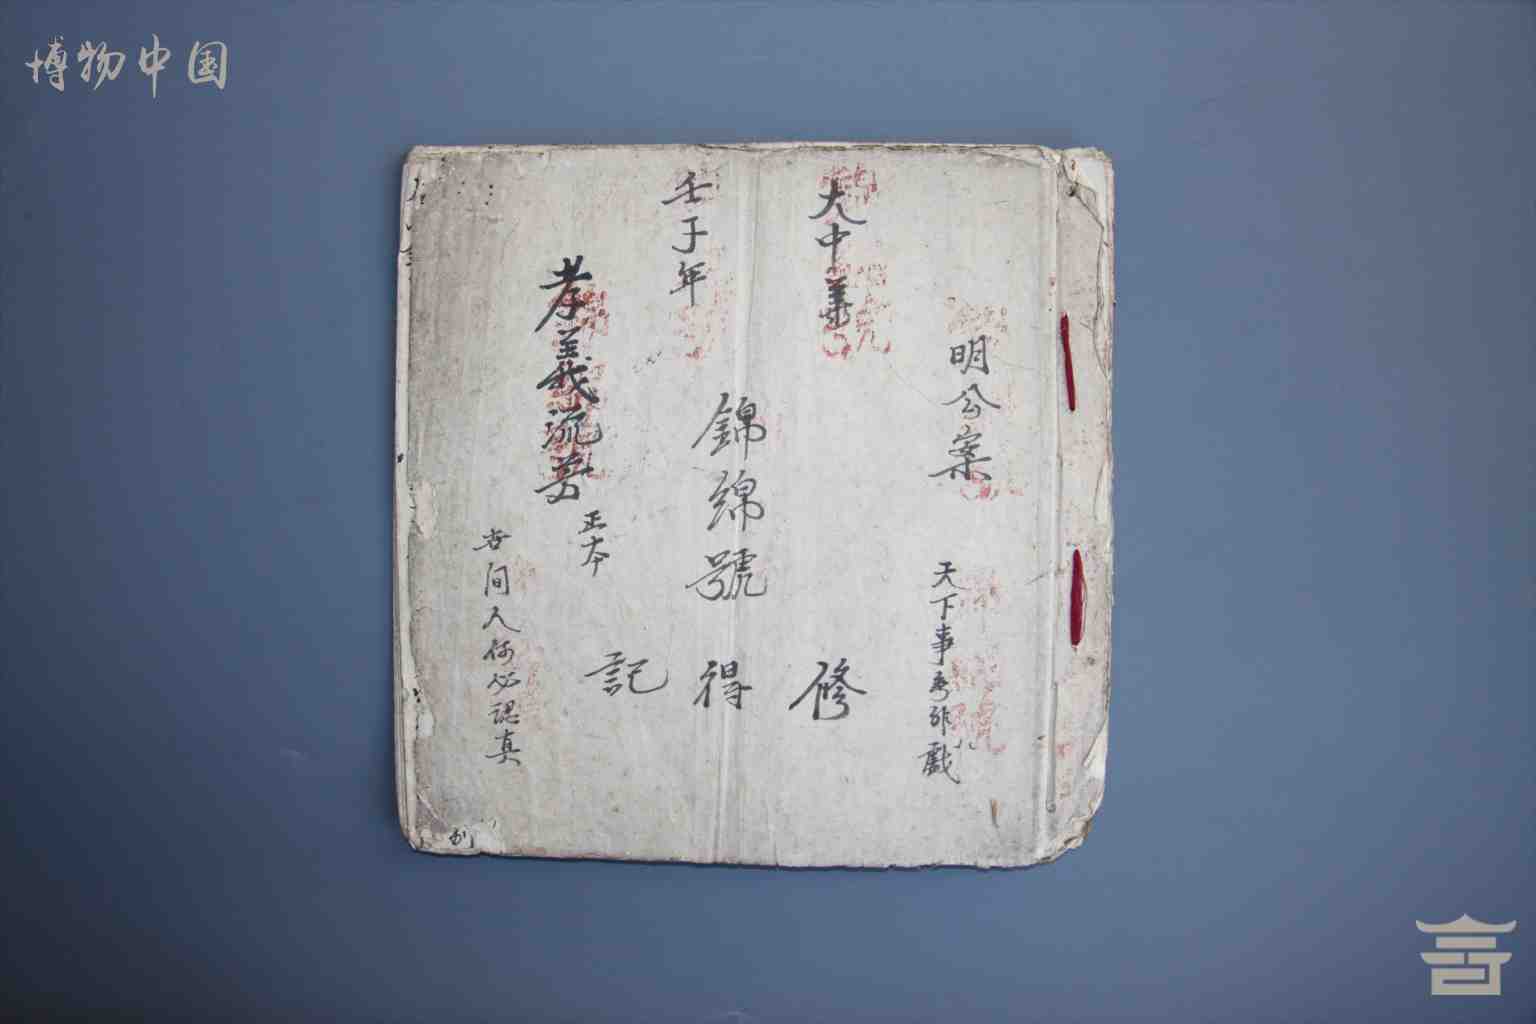 博物中国
明公案
天下事
戲
大中華
壬子年
錦綿號
修得記
孝義流芳
正本
世間人何必認真